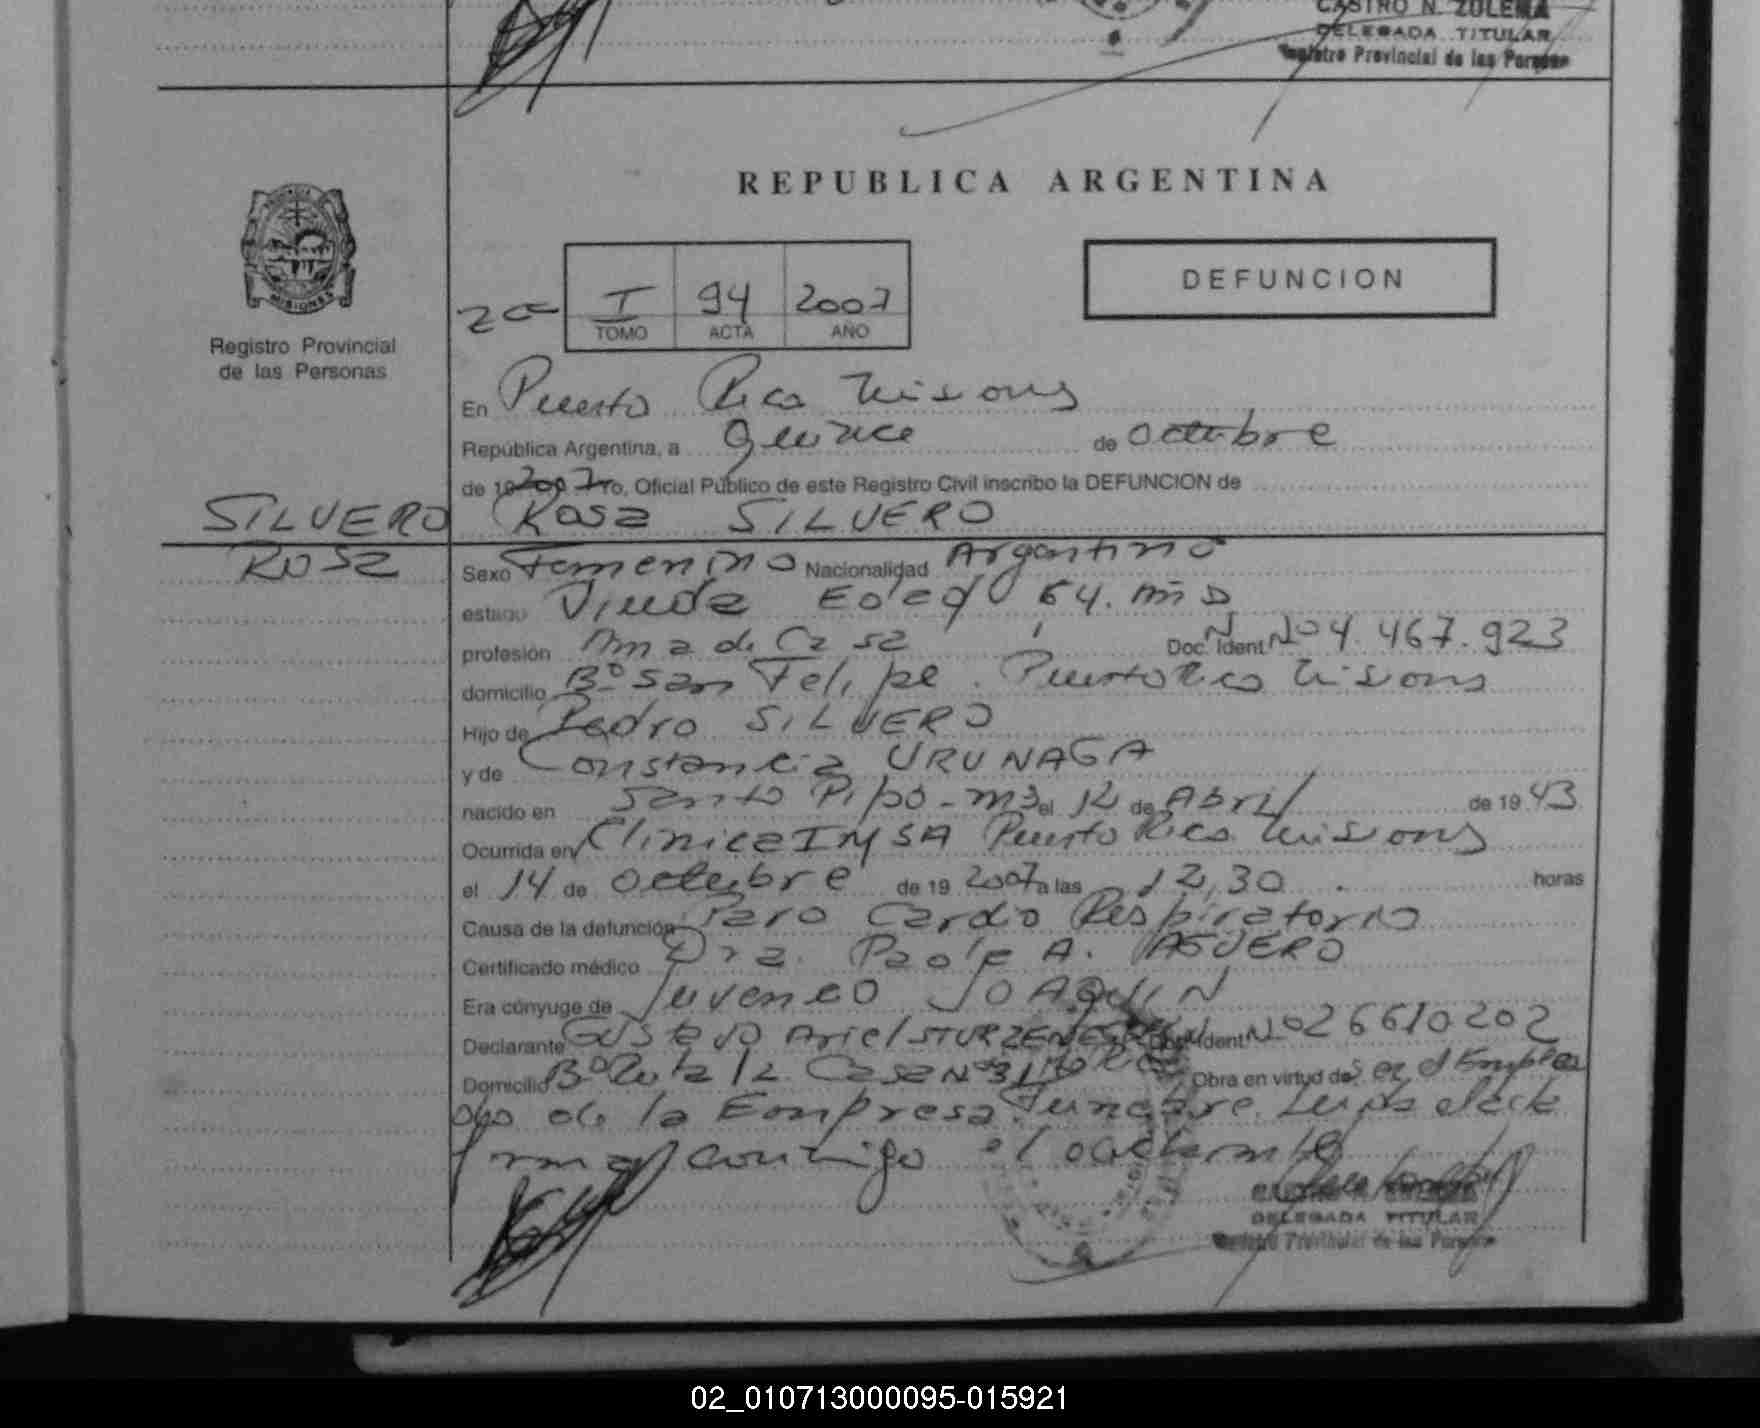 CASTRO N. ZULEMA
DELEGADA TITULAR
Registro Provincial de las Personas
REPUBLICA ARGENTINA
MISIONES
Registro Provincial
de las Personas
I 94 2007
TOMO ACTA AÑO
DEFUNCION
En Puerto Rico Misiones
República Argentina, a Quince de Octubre
de 19 2007 Yo, Oficial Público de este Registro Civil inscribo la DEFUNCION de
SILVERO Rosa SILVERO
Rosa
Sexo Femenino Nacionalidad Argentino
estado Viuda Edad 64. años
profesión Ama de Casa Doc. Ident. Nº 4.467.923
domicilio Bº San Felipe. Puerto Rico Misiones
Hijo de Pedro SILVERO
y de Constancia URUNAGA
nacido en Santo Pipó - Ms el 12 de Abril de 1943
Ocurrida en Clinica IMSA Puerto Rico Misiones
el 14 de Octubre de 19 2007 a las 12,30 horas
Causa de la defunción Paro Cardio Respiratorio
Certificado médico Dra. Paola A. AGUERO
Era cónyuge de Juvencio JOAQUIN
Declarante Gustavo Ariel Doc. Ident. Nº 26610202
Domicilio Bº Ruta 12 Casa Nº 31 Obra en virtud de Ser el Emplea
do de la Empresa Funebre. Leida
firma conmigo el declarante
DELEGADA TITULAR
Registro Provincial de las Personas
02_010713000095-015921